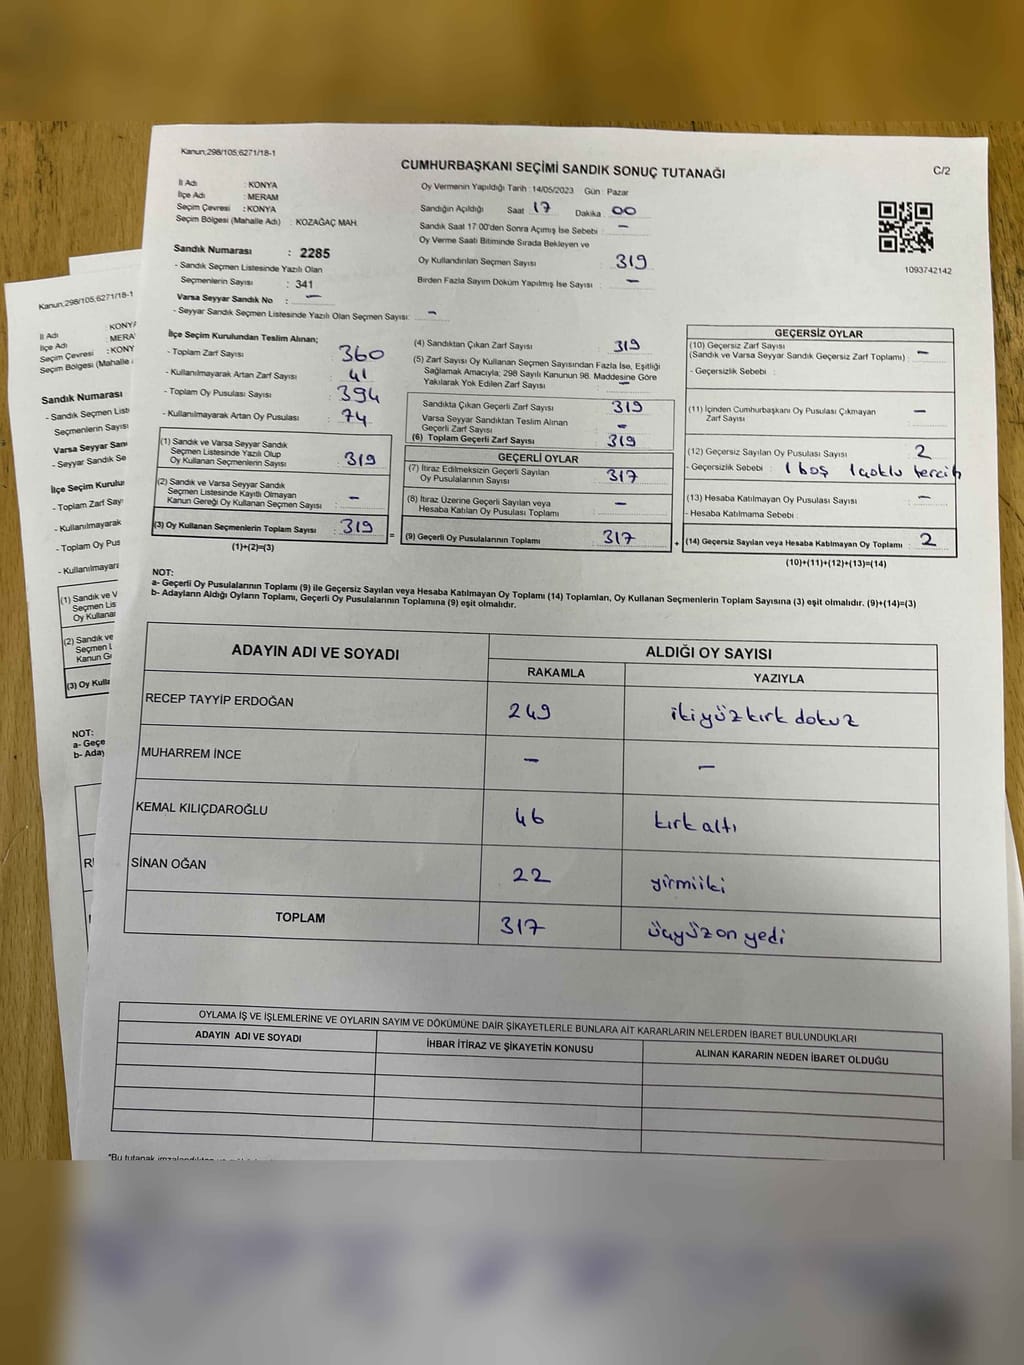 Kanun,298/105,6271/18-1
CUMHURBAŞKANI SEÇİMİ SANDIK SONUÇ TUTANAĞI
C/2
İl Adı : KONYA
İlçe Adı : MERAM
Seçim Çevresi : KONYA
Seçim Bölgesi (Mahalle Adı) : KOZAĞAÇ MAH.
Oy Vermenin Yapıldığı Tarih : 14/05/2023 Gün : Pazar
Sandığın Açıldığı Saat 17 Dakika 00
Sandık Saat 17:00'den Sonra Açmış İse Sebebi : -
Oy Verme Saati Bitiminde Sırada Bekleyen ve
Oy Kullandırılan Seçmen Sayısı : 319
Birden Fazla Sayım Döküm Yapılmış İse Sayısı : -
1093742142
Sandık Numarası : 2285
- Sandık Seçmen Listesinde Yazılı Olan
Seçmenlerin Sayısı : 341
Varsa Seyyar Sandık No : -
- Seyyar Sandık Seçmen Listesinde Yazılı Olan Seçmen Sayısı: -
İlçe Seçim Kurulundan Teslim Alınan;
- Toplam Zarf Sayısı : 360
- Kullanılmayarak Artan Zarf Sayısı : 41
- Toplam Oy Pusulası Sayısı : 394
- Kullanılmayarak Artan Oy Pusulası : 74
(1) Sandık ve Varsa Seyyar Sandık
Seçmen Listesinde Yazılı Olup
Oy Kullanan Seçmenlerin Sayısı : 319
(2) Sandık ve Varsa Seyyar Sandık
Seçmen Listesinde Kayıtlı Olmayan
Kanun Gereği Oy Kullanan Seçmen Sayısı : -
(3) Oy Kullanan Seçmenlerin Toplam Sayısı : 319
(1)+(2)=(3)
=
(4) Sandıktan Çıkan Zarf Sayısı : 319
(5) Zarf Sayısı Oy Kullanan Seçmen Sayısından Fazla İse, Eşitliği
Sağlamak Amacıyla; 298 Sayılı Kanunun 98. Maddesine Göre
Yakılarak Yok Edilen Zarf Sayısı : -
Sandıkta Çıkan Geçerli Zarf Sayısı : 319
Varsa Seyyar Sandıktan Teslim Alınan
Geçerli Zarf Sayısı : -
(6) Toplam Geçerli Zarf Sayısı : 319
GEÇERLİ OYLAR
(7) İtiraz Edilmeksizin Geçerli Sayılan
Oy Pusulalarının Sayısı : 317
(8) İtiraz Üzerine Geçerli Sayılan veya
Hesaba Katılan Oy Pusulası Toplamı : -
(9) Geçerli Oy Pusulalarının Toplamı : 317
+
GEÇERSİZ OYLAR
(10) Geçersiz Zarf Sayısı
(Sandık ve Varsa Seyyar Sandık Geçersiz Zarf Toplamı) : -
- Geçersizlik Sebebi :
(11) İçinden Cumhurbaşkanı Oy Pusulası Çıkmayan
Zarf Sayısı : -
(12) Geçersiz Sayılan Oy Pusulası Sayısı : 2
- Geçersizlik Sebebi : 1 boş 1 çoklu tercih
(13) Hesaba Katılmayan Oy Pusulası Sayısı : -
- Hesaba Katılmama Sebebi :
(14) Geçersiz Sayılan veya Hesaba Katılmayan Oy Toplamı : 2
(10)+(11)+(12)+(13)=(14)
NOT:
a- Geçerli Oy Pusulalarının Toplamı (9) ile Geçersiz Sayılan veya Hesaba Katılmayan Oy Toplamı (14) Toplamları, Oy Kullanan Seçmenlerin Toplam Sayısına (3) eşit olmalıdır. (9)+(14)=(3)
b- Adayların Aldığı Oyların Toplamı, Geçerli Oy Pusulalarının Toplamına (9) eşit olmalıdır.
ADAYIN ADI VE SOYADI ALDIĞI OY SAYISI
RAKAMLA YAZIYLA
RECEP TAYYİP ERDOĞAN 249 ikiyüzkırk dokuz
MUHARREM İNCE - -
KEMAL KILIÇDAROĞLU 46 kırk altı
SİNAN OĞAN 22 yirmiiki
TOPLAM 317 üçyüz on yedi
OYLAMA İŞ VE İŞLEMLERİNE VE OYLARIN SAYIM VE DÖKÜMÜNE DAİR ŞİKAYETLERLE BUNLARA AİT KARARLARIN NELERDEN İBARET BULUNDUKLARI
ADAYIN ADI VE SOYADI İHBAR İTİRAZ VE ŞİKAYETİN KONUSU ALINAN KARARIN NEDEN İBARET OLDUĞU
*Bu tutanak
Kanun,298/105,6271/18-1
İl Adı : KONYA
İlçe Adı : MERA
Seçim Çevresi : KONY
Seçim Bölgesi (Mahalle
Sandık Numarası
- Sandık Seçmen List
Seçmenlerin Sayısı
Varsa Seyyar San
- Seyyar Sandık Se
İlçe Seçim Kurulu
- Toplam Zarf Say
- Kullanılmayarak
- Toplam Oy Pus
- Kullanılmayara
(1) Sandık ve V
Seçmen Lis
Oy Kullana
(2) Sandık ve
Seçmen L
Kanun G
(3) Oy Kulla
NOT:
a- Geçe
b- Aday